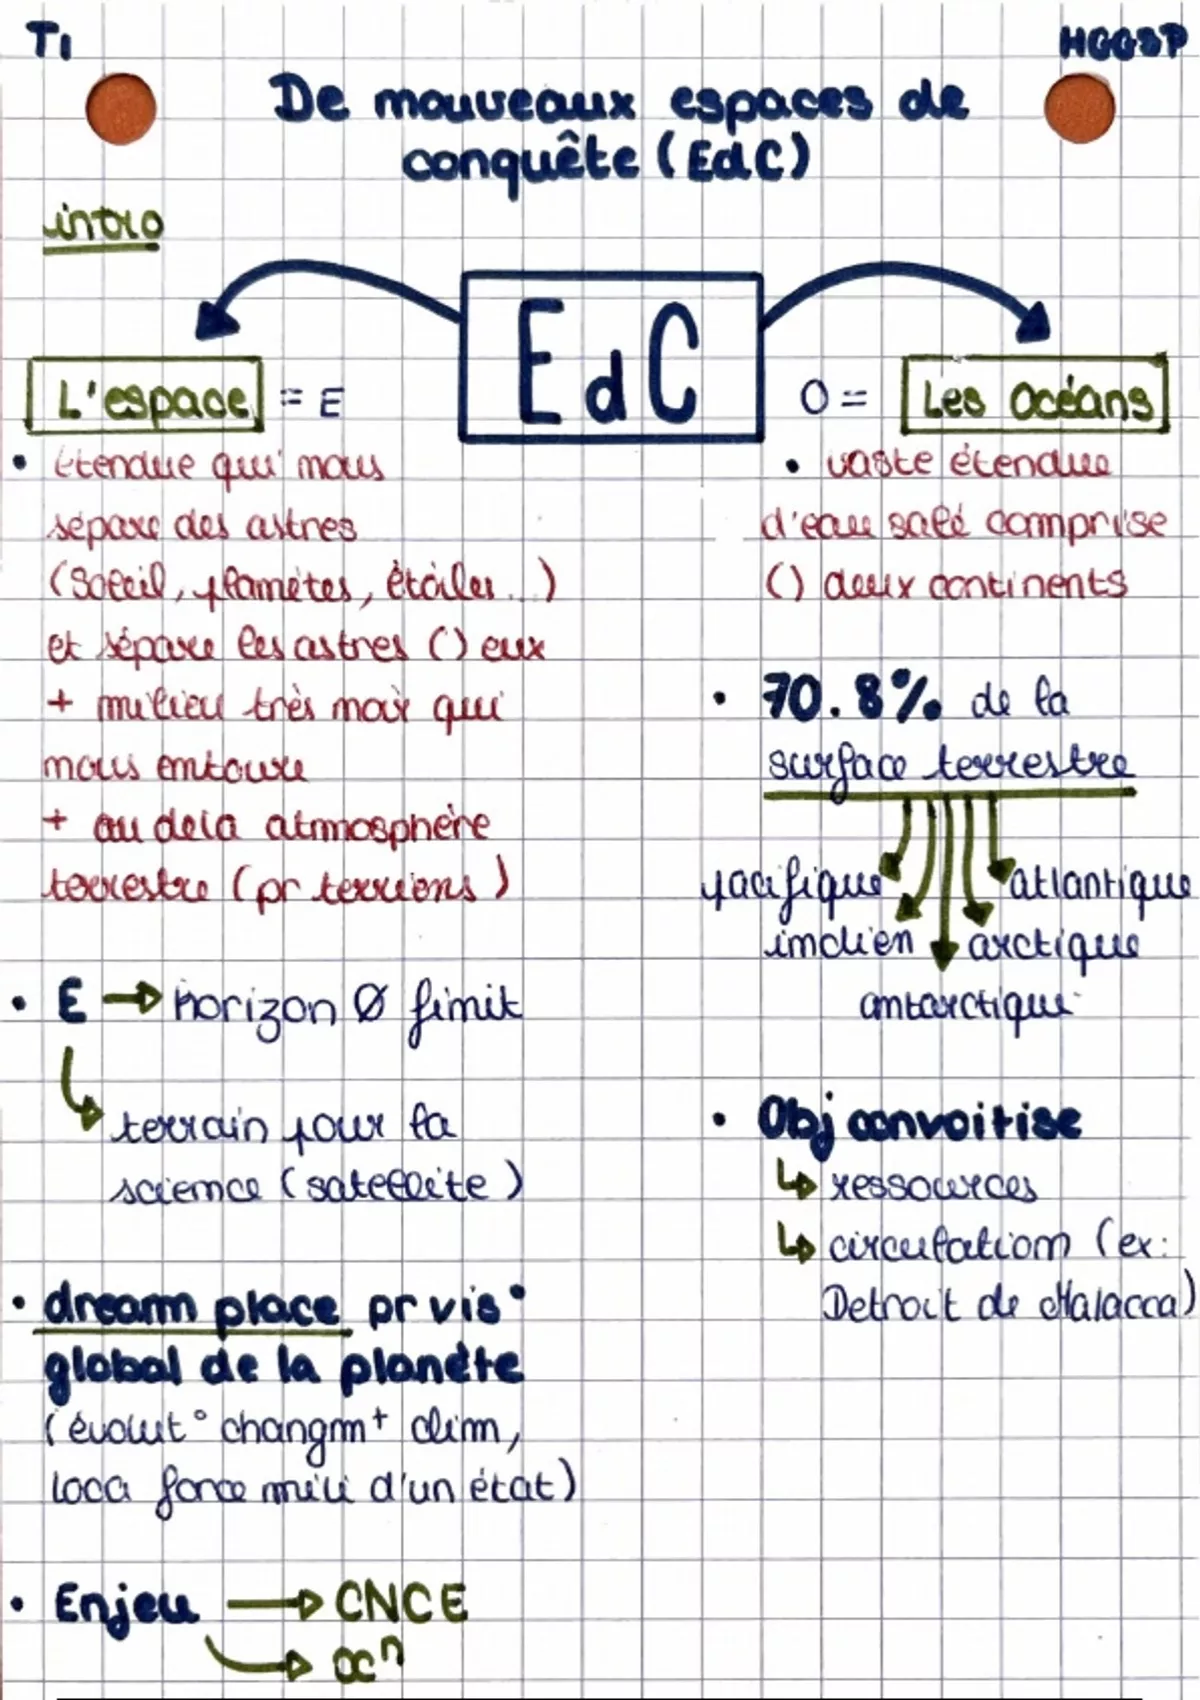 T1
HGGSP
De nouveaux espaces de
conquête (EdC)
intro
EdC
L'espace = E
• étendue qui nous
sépare des astres
(Soleil, planètes, étoiles...)
et sépare les astres () eux
+ milieu très noir qui
nous entoure
+ au dela atmosphère
terrestre (pr terriens)
• E → horizon Ø finit
↳ terrain pour la
science (satellite)
• dream place pr vis°
global de la planète
(évolut° changmt clim,
loca force mili d'un état)
• Enjeu → CNCE
→ oc^n
O = Les Océans
• vaste étendue
d'eau salé comprise
() deux continents
• 70.8% de la
surface terrestre
pacifique
atlantique
indien
arctique
antarctique
• Obj convoitise
↳ ressources
↳ circulation (ex:
Detroit de Malacca)